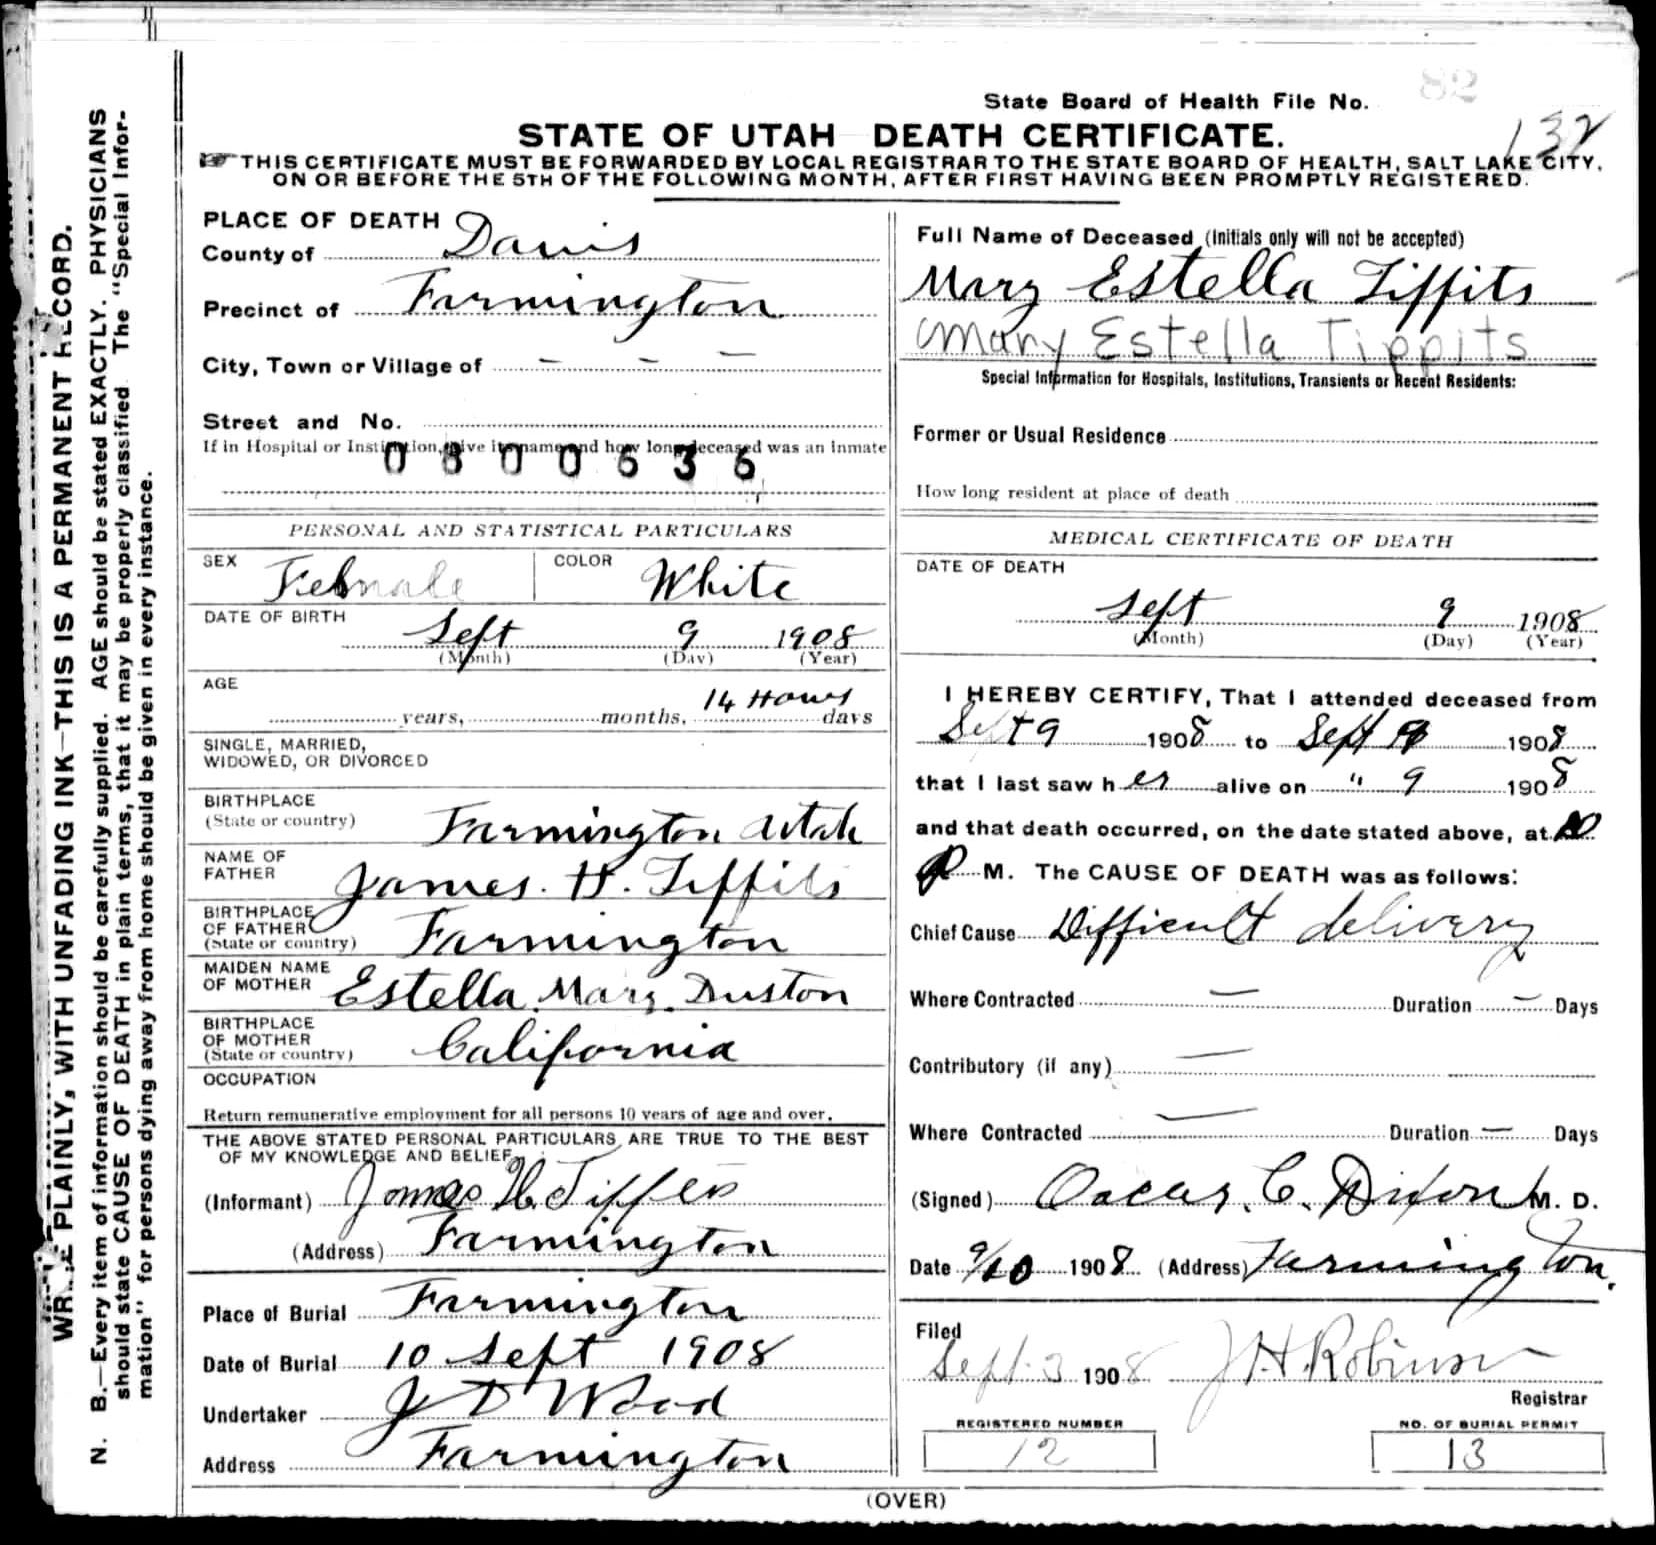 State Board of Health File No. 82
132
STATE OF UTAH DEATH CERTIFICATE.
THIS CERTIFICATE MUST BE FORWARDED BY LOCAL REGISTRAR TO THE STATE BOARD OF HEALTH, SALT LAKE CITY,
ON OR BEFORE THE 5TH OF THE FOLLOWING MONTH, AFTER FIRST HAVING BEEN PROMPTLY REGISTERED.
WRITE PLAINLY, WITH UNFADING INK—THIS IS A PERMANENT RECORD.
N. B.—Every item of information should be carefully supplied. AGE should be stated EXACTLY. PHYSICIANS
should state CAUSE OF DEATH in plain terms, that it may be properly classified The "Special Infor-
mation" for persons dying away from home should be given in every instance.
PLACE OF DEATH
County of Davis
Precinct of Farmington
City, Town or Village of – – –
Street and No.
If in Hospital or Institution, give its name and how long deceased was an inmate
0800636
PERSONAL AND STATISTICAL PARTICULARS
SEX Female COLOR White
DATE OF BIRTH
Sept 9 1908
(Month) (Day) (Year)
AGE
14 Hours
years, months, days
SINGLE, MARRIED,
WIDOWED, OR DIVORCED
BIRTHPLACE
(State or country) Farmington Utah
NAME OF
FATHER James. H. Tippits
BIRTHPLACE
OF FATHER
(State or country) Farmington
MAIDEN NAME
OF MOTHER Estella Mary Duston
BIRTHPLACE
OF MOTHER
(State or country) California
OCCUPATION
Return remunerative employment for all persons 10 years of age and over.
THE ABOVE STATED PERSONAL PARTICULARS ARE TRUE TO THE BEST
OF MY KNOWLEDGE AND BELIEF.
(Informant) James H. Tippets
(Address) Farmington
Place of Burial Farmington
Date of Burial 10 Sept 1908
Undertaker J D Wood
Address Farmington
Full Name of Deceased (Initials only will not be accepted)
Mary Estella Tippits
Mary Estella Tippits
Special Information for Hospitals, Institutions, Transients or Recent Residents:
Former or Usual Residence
How long resident at place of death
MEDICAL CERTIFICATE OF DEATH
DATE OF DEATH
Sept 9 1908
(Month) (Day) (Year)
I HEREBY CERTIFY, That I attended deceased from
Sept 9 1908 to Sept 9 1908
that I last saw her alive on " 9 1908
and that death occurred, on the date stated above, at 10
P M. The CAUSE OF DEATH was as follows:
Chief Cause Difficult delivery
Where Contracted – Duration – Days
Contributory (if any) –
Where Contracted – Duration – Days
(Signed) Oscar. C. Dixon M. D.
Date 9/10 1908 (Address) Farmington.
Filed
Sept. 3 1908 J H Robinson
Registrar
REGISTERED NUMBER
12
NO. OF BURIAL PERMIT
13
(OVER)